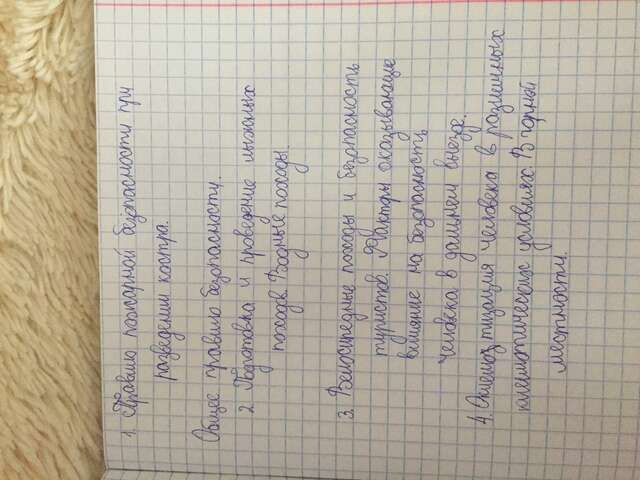 1. Правила пожарной безопасности при
разведении костра.
Общее правила безопасности.
2. Подготовка и проведение лыжных
походв. Водные походы.
3. Велосипедные походы и безопасность
туристов. Факторы оказывающие
влияние на безопасность
человека в дальнем выезде.
4. Акклиматизация человека в различных
климатических условиях. В горный
местности.